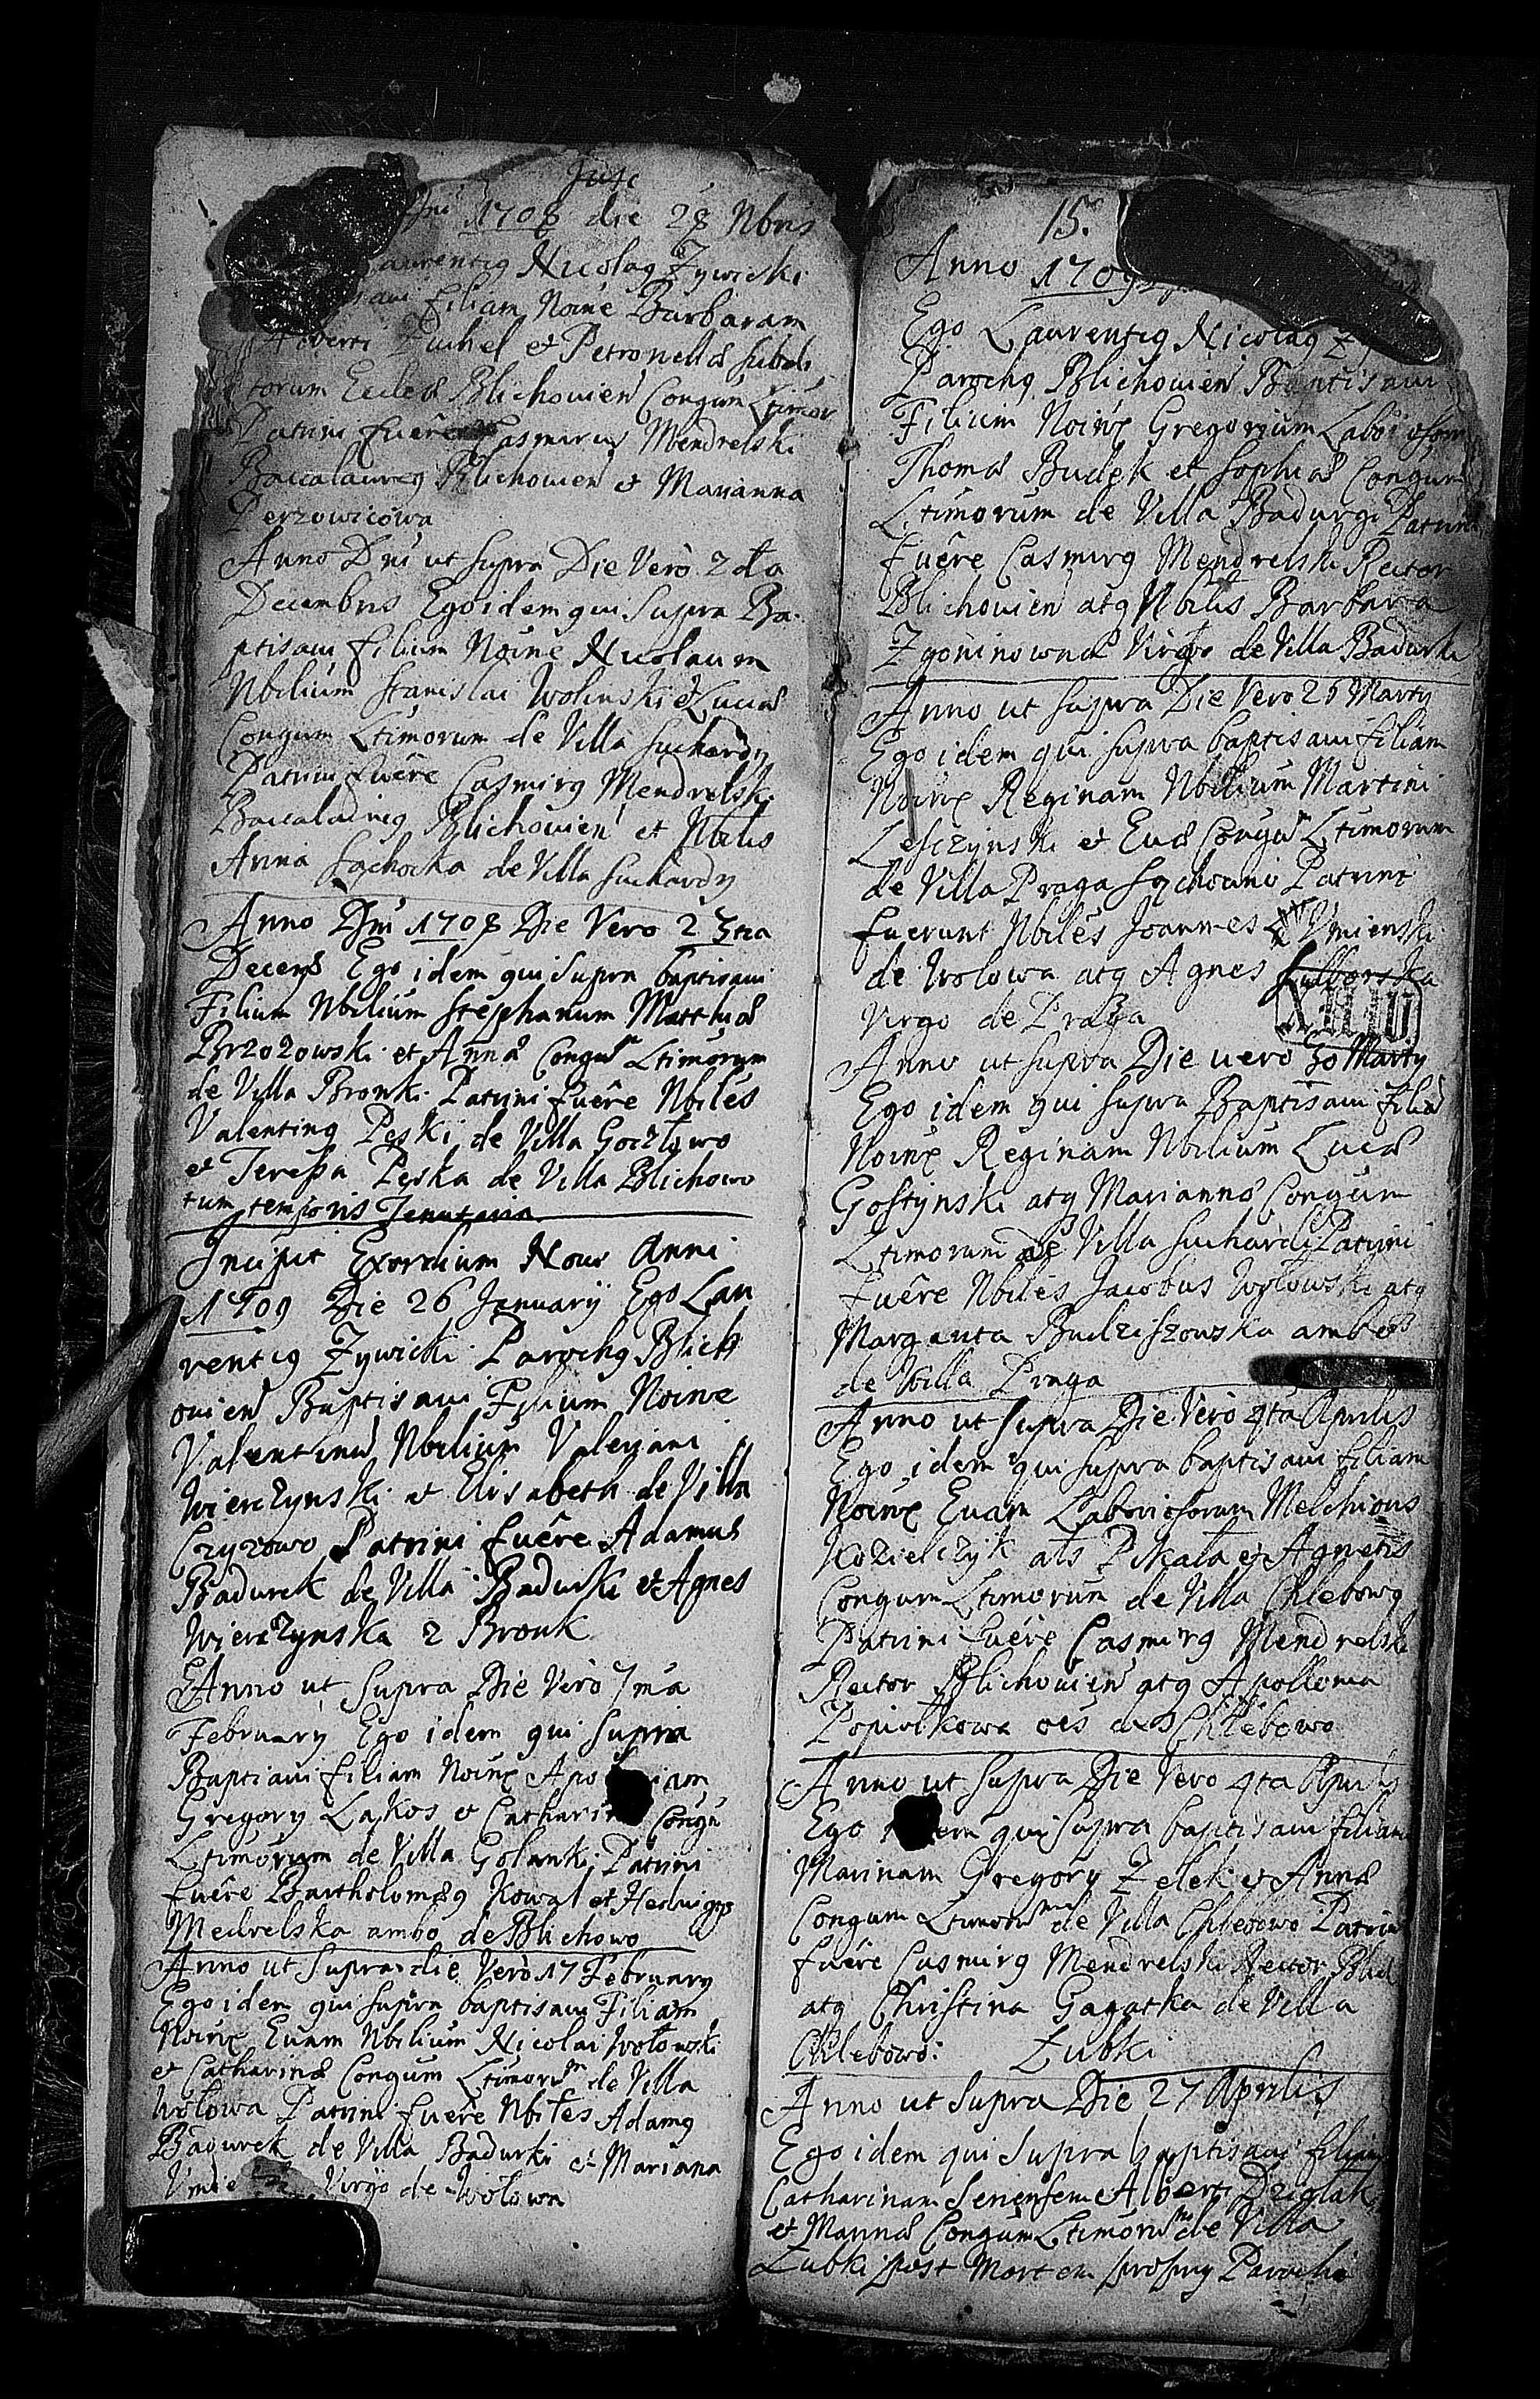 1708 die 28 Nbris
Nicolaq Zywicki
filiam Noine Barbaram
Zuchel et Petronellæ
torum Eccleæ Blichovien Congum Ltimor
Patrini fuêre Casmirus Mendrelski
Baccalaureq Blichovien et Marianna
Perzowicowa
Anno Dni ut supra Die Verò 2da
Decembris Ego idem qui supra Ba-
ptisavi filium Noine Nicolaum
Nbilium Stanislai Wolinski et Luciæ
Congum Ltimorum de Villa Suchardy
Patrini fuêre Casmirq Mendrelski
Baccalaureq Blichovien et Nbilis
Anna Sąchocka de Villa Suchardy
Anno Dni 1708 Die Vero 23tia
Decembs Ego idem qui supra baptisavi
Filium Nbilium Stephanum Matthiæ
Brzozowski et Annæ Congum Ltimorum
de Villa Bronki Patrini fuêre Nbiles
Valentinq Pęski de Villa Goczłowo
et Teressa Pęska de Villa Blichowo
tum temporis Tenutaria
Incipit Exordium Novi Anni
1709 Die 26 Januarij Ego Lau
rentiq Zywicki Parochq Blich
ovien Baptisavi Filium Noine
Valentinum Nbilium Valeriani
Wierczynski et Elisabeth de Villa
Czyzowo Patrini fuêre Adamus
Badurek de Villa Badurki et Agnes
Wierczynska 2 Bronk
Anno ut Supra Die Verò 7ma
February Ego idem qui supra
Baptiavi filiam Noine Apo iam
Gregory Lakos et Catharin Congu
Ltimorum de Villa Golanki Patrini
fuêre Bartholomæq Kowal et Hedvigis
Medrelska ambo de Blichowo
Anno ut Supra die Verò 17 February
Ego idem qui supra baptisavi Filiam
Noine Evam Nbilium Nicolai Wołowski
et Catharinæ Congum Ltimorum de Villa
Wołowa Patrini fuêre Nbiles Adamq
Badurek de Villa Badurki et Mariana
Virgo de Wołowa
15.
Anno 1709
Ego Laurentiq Nicolaq
Parochq Blichovien Baptisavi
Filium Noine Gregorium Laboriosorum
Thomæ Budek et Sophiæ Congum
Ltimorum de Villa Badurgi Patrini
fuêre Casmirq Mendrelski Rector
Blichovien atq Nbilis Barbara
Zgoninowna Virgo de Villa Badurki
Anno ut supra Die Vero 25 Marty
Ego idem qui supra baptisavi filiam
Noine Reginam Nbilium Martini
Lesczynski et Evæ Congum Ltimorum
de Villa Praga Sąchowno Patrini
fuerunt Nbiles Joannes Umienski
de Wolowa atq Agnes
Virgo de Praga
Anno ut supra Die vero 30 Marty
Ego idem qui supra Baptisavi filiā
Noine Reginam Nbilium Lucæ
Gostynski atq Mariannæ Congum
Ltimorum de Villa Suchardi Patrini
fuêre Nbiles Jacobus Wołowski atq
Margarita Budziszowska ambo
de Villa Praga
Anno ut supra Die Verò 4ta Aprilis
Ego idem qui supra baptisavi filiam
Noine Evam Laboriosorum Melchioris
Kozielczyk ałs Pikała et Agnetis
Congum Ltimorum de Villa Chlebowo
Patrini fuêre Casmirq Mendrelski
Rector Blichovien atq Apollonia
Popiołkowa oes de Chlebowo
Anno ut supra Die Vero 4ta Aprilis
Ego idem qui supra baptisavi filiam
Marinam Gregory Zelek et Annæ
Congum Ltimorum de Villa Chlebowo Patrini
fuêre Casmirq Mendrelski Rector Blich
atq Christina Gagatka de Villa
Chlebowo: Łubki
Anno ut supra Die 27 Aprilis
Ego idem qui supra baptisavi filiam
Catharinam Senensem Alberti Dzięlak
et Mannæ Congum Ltimorum de Villa
Łubki post Mortem propry Parochi